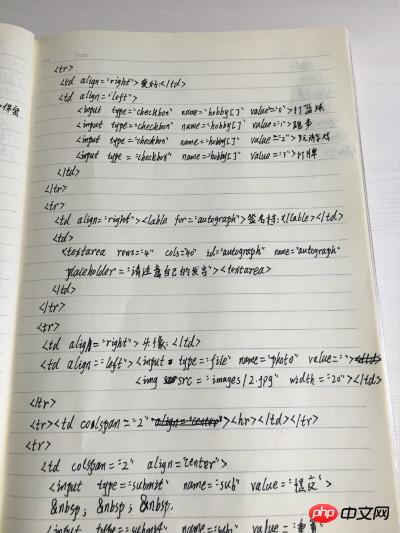 保密
<tr>
<td align="right">爱好:</td>
<td align="left">
<input type="checkbox" name="hobby[]" value="0">打篮球
<input type="checkbox" name="hobby[]" value="1">跑步
<input type="checkbox" name="hobby[]" value="2">玩游戏
<input type="checkbox" name="hobby[]" value="3">打牌
</td>
</tr>
<tr>
<td align="right"><lable for="autograph">签名档:</lable></td>
<td>
<textarea rows="4" cols="40" id="autograph" name="autograph"
placeholder="请注意自己的发言"><textarea>
</td>
</tr>
<tr>
<td align="right">头像:</td>
<td align="left"><input type="file" name="photo" value="">
<img src="images/2.jpg" width="20"></td>
</tr>
<tr><td coolspan="2" align="center"><hr></td></tr>
<tr>
<td colspan="2" align="center">
<input type="submit" name="sub" value="提交">
&nbsp; &nbsp; &nbsp;
<input type="submit" name="sub" value="重置">
php中文网